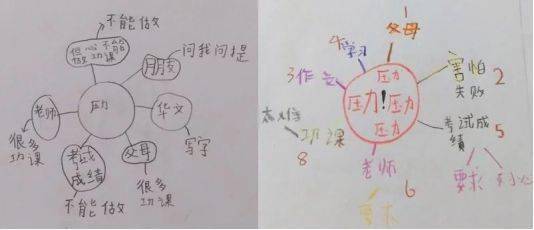 不能做
但心不能
做功课
朋友
问我问提
压力
华文
写字
老师
很多
功课
考试
成绩
不能做
父母
很多
功课
父母
4学习
3作文
压力
压力!压力
压力
害怕
失败
2
考试成
绩
5
要求
功课
8
老师
6
要求